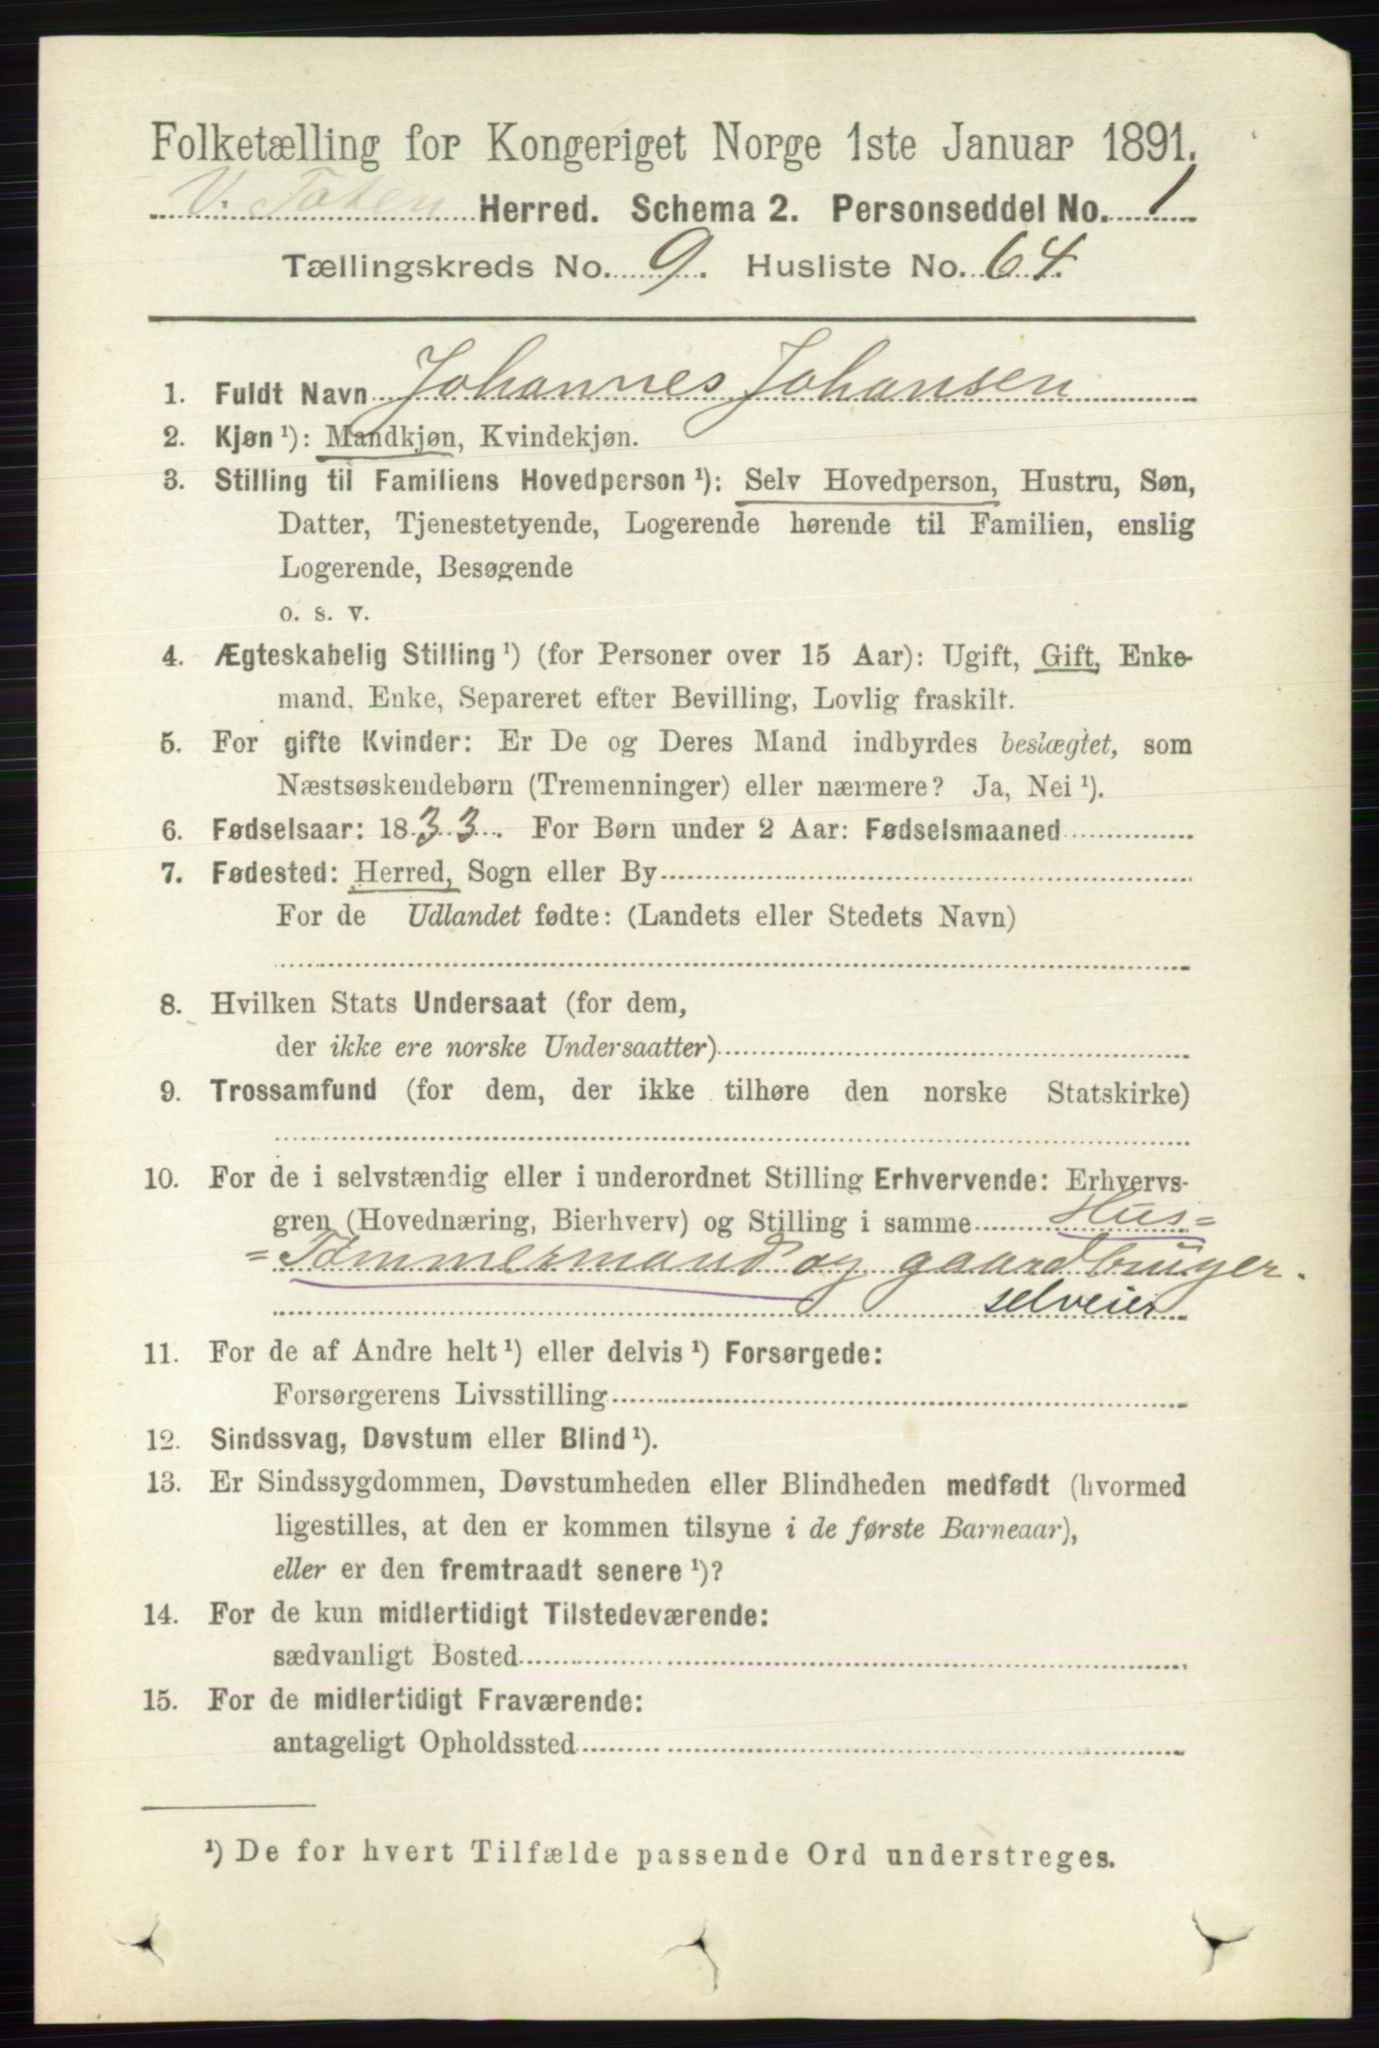 Folketælling for Kongeriget Norge 1ste Januar 1891.
V. Toten Herred. Schema 2. Personseddel No. 1
Tællingskreds No. 9. Husliste No. 64.
1. Fuldt Navn Johannes Johansen
2. Kjøn ¹): Mandkjøn, Kvindekjøn.
3. Stilling til Familiens Hovedperson ¹): Selv Hovedperson, Hustru, Søn,
Datter, Tjenestetyende, Logerende hørende til Familien, enslig
Logerende, Besøgende
o. s. v.
4. Ægteskabelig Stilling ¹) (for Personer over 15 Aar): Ugift, Gift, Enke-
mand, Enke, Separeret efter Bevilling, Lovlig fraskilt.
5. For gifte Kvinder: Er De og Deres Mand indbyrdes beslægtet, som
Næstsøskendebørn (Tremenninger) eller nærmere? Ja, Nei ¹).
6. Fødselsaar: 1833. For Børn under 2 Aar: Fødselsmaaned
7. Fødested: Herred, Sogn eller By
For de Udlandet fødte: (Landets eller Stedets Navn)
8. Hvilken Stats Undersaat (for dem,
der ikke ere norske Undersaatter)
9. Trossamfund (for dem, der ikke tilhøre den norske Statskirke)
10. For de i selvstændig eller i underordnet Stilling Erhvervende: Erhvervs-
gren (Hovednæring, Bierhverv) og Stilling i samme Hus=
=Tømmermand og gaardbruger.
selveier
11. For de af Andre helt ¹) eller delvis ¹) Forsørgede:
Forsørgerens Livsstilling
12. Sindssvag, Døvstum eller Blind ¹).
13. Er Sindssygdommen, Døvstumheden eller Blindheden medfødt (hvormed
ligestilles, at den er kommen tilsyne i de første Barneaar),
eller er den fremtraadt senere ¹)?
14. For de kun midlertidigt Tilstedeværende:
sædvanligt Bosted
15. For de midlertidigt Fraværende:
antageligt Opholdssted
¹) De for hvert Tilfælde passende Ord understreges.